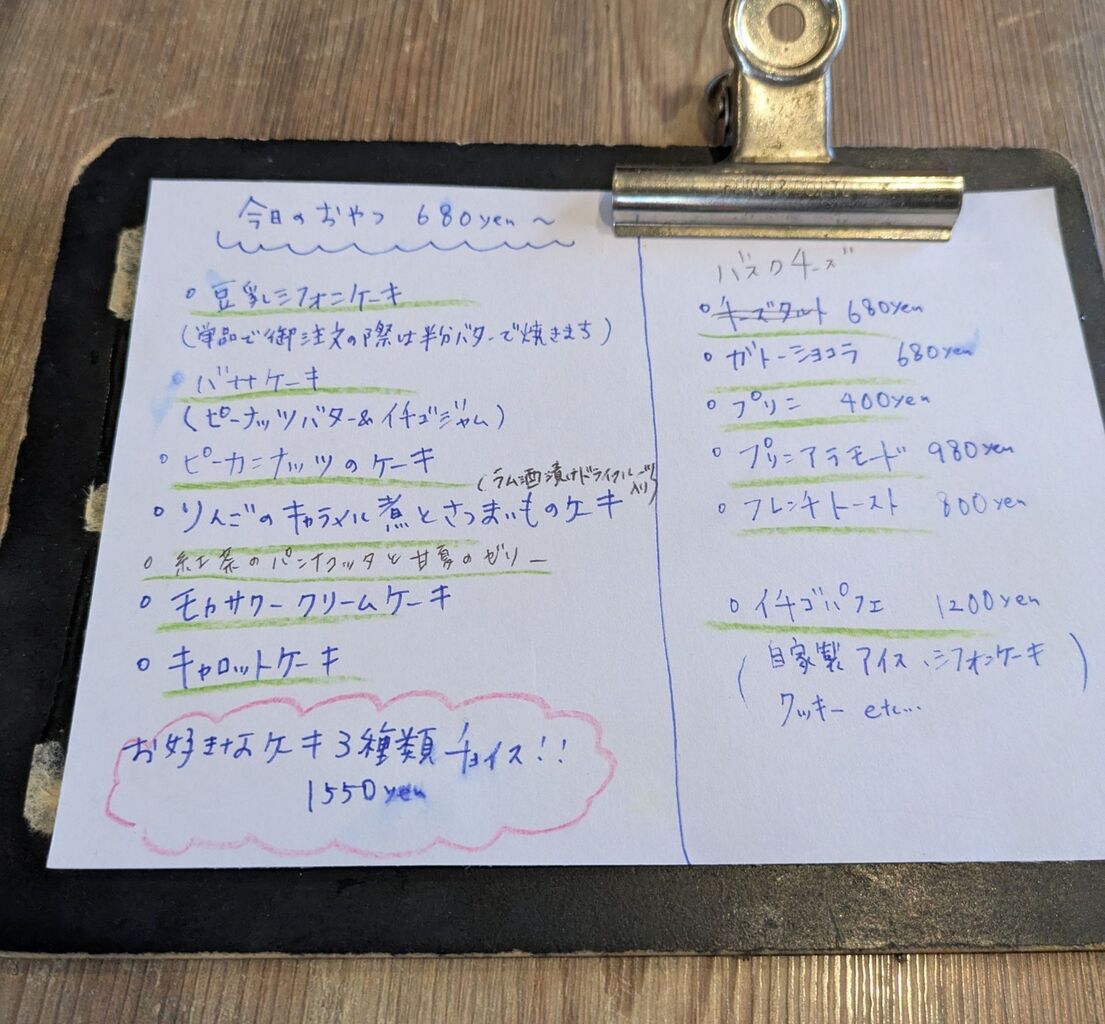 今日のおやつ 680yen～
。豆乳シフォンケーキ
(単品で御注文の際は半分バターで焼きます)
。バナナケーキ
(ピーナッツバター&イチゴジャム)
。ピーカンナッツのケーキ
(ラム酒漬けドライフルーツ入り)
。りんごのキャラメル煮とさつまいものケーキ
。紅茶のパンナコッタと甘夏のゼリー
。モカサワークリームケーキ
。キャロットケーキ
お好きなケーキ3種類チョイス!!
1550yen
バスクチーズ
。チーズタルト 680yen
。ガトーショコラ 680yen
。プリン 400yen
。プリンアラモード 980yen
。フレンチトースト 800yen
。イチゴパフェ 1200yen
(自家製アイス、シフォンケーキ
クッキー etc...)